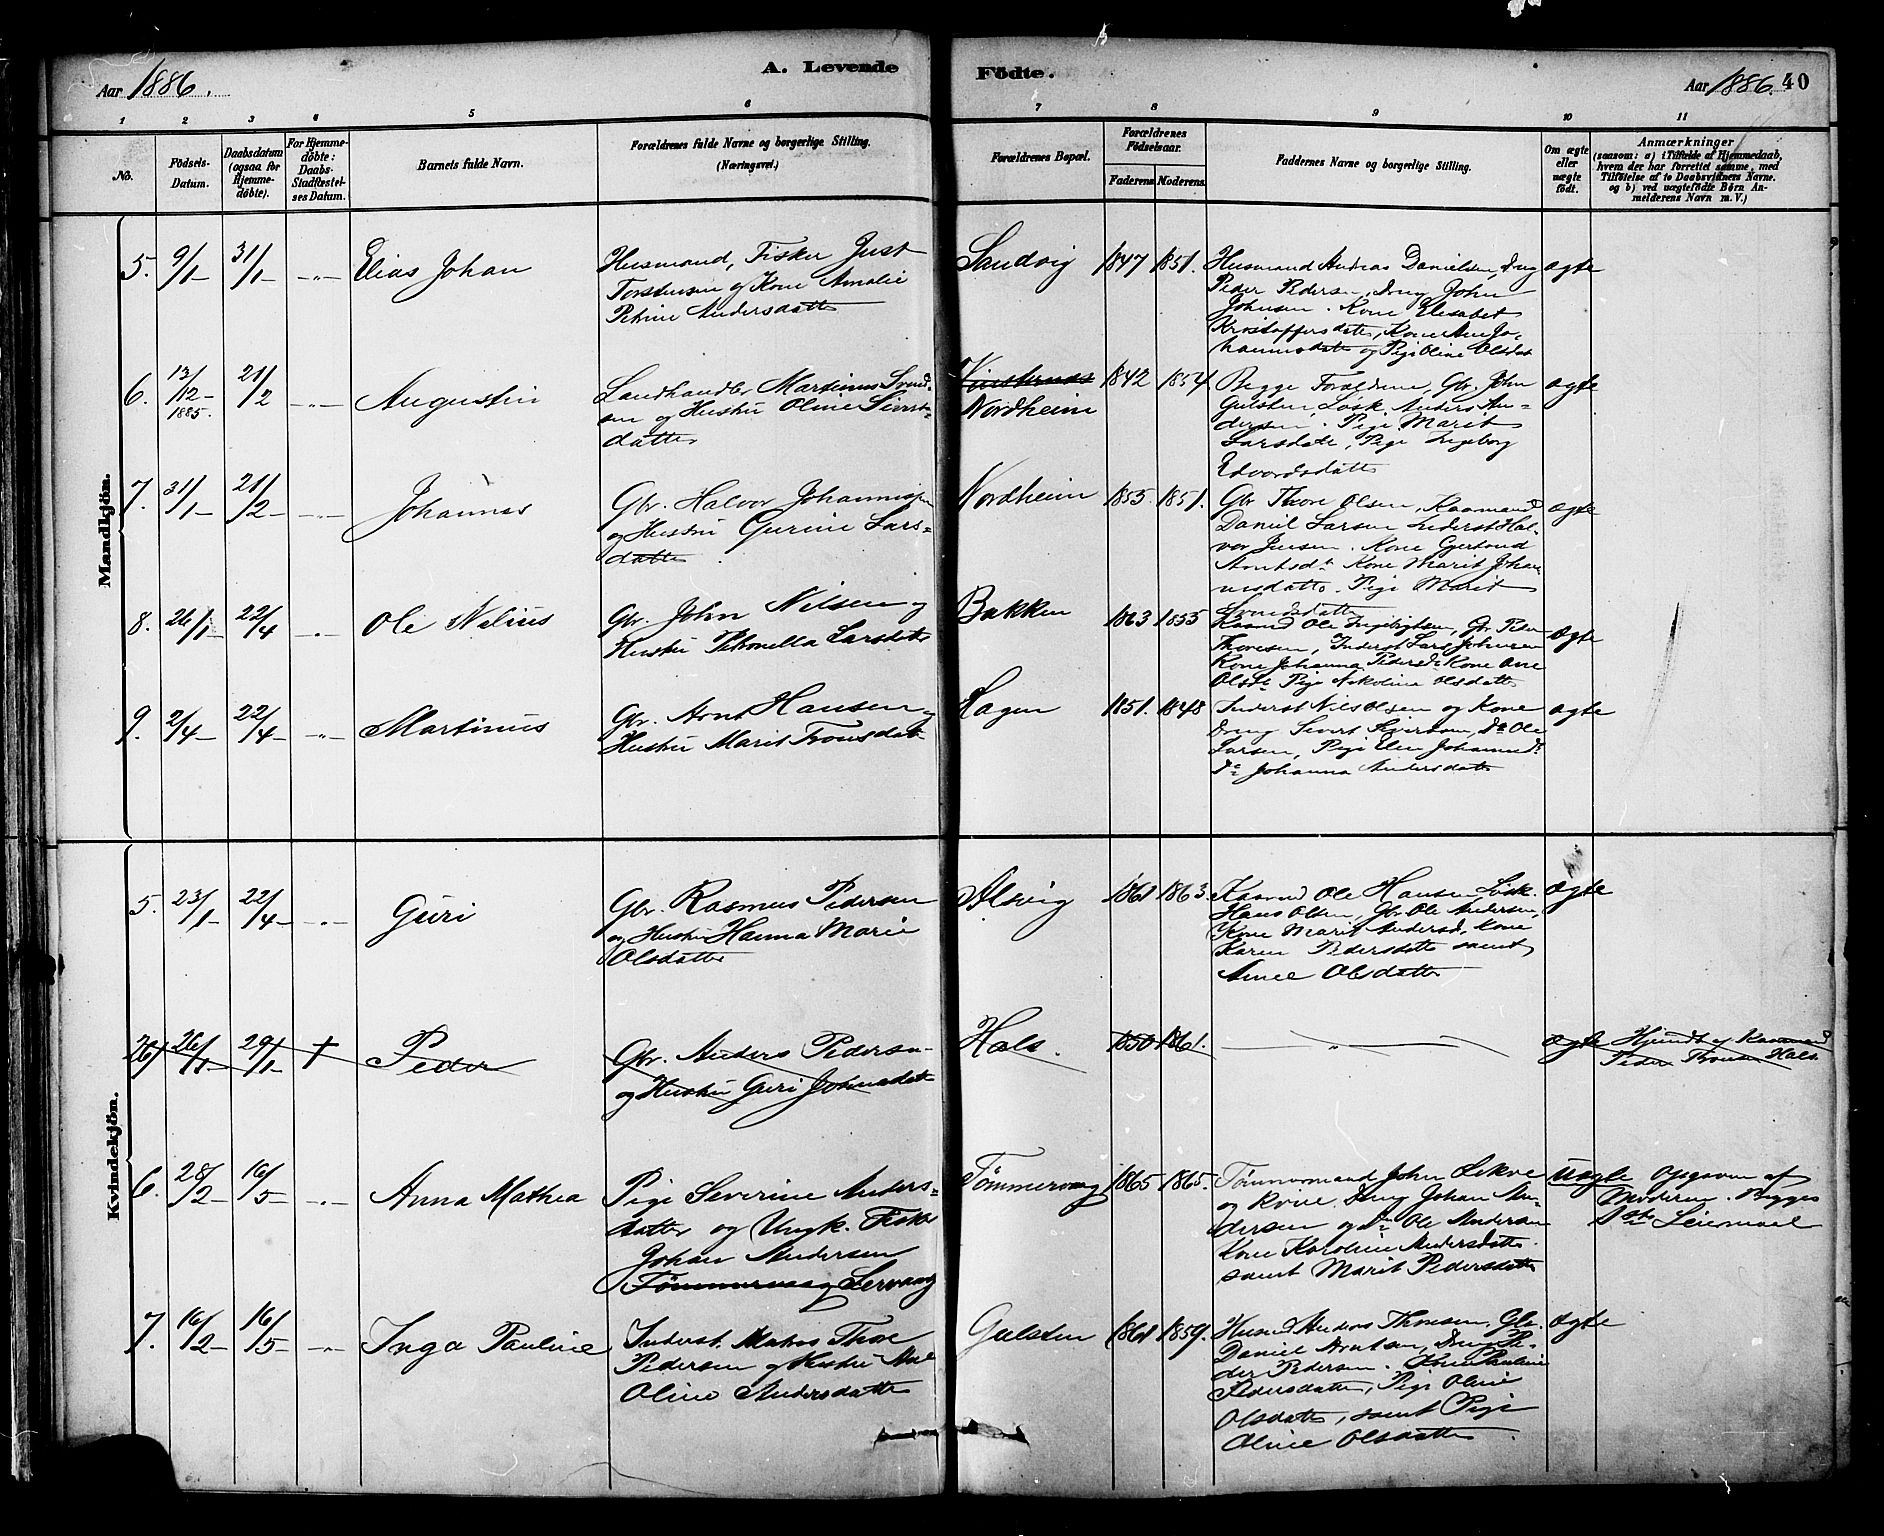 Aar 1886.
A. Levende
Födte.
Aar 1886. 40
1 2 3 4 5 6 7 8 9 10 11
No.
Födsels-Datum.
Daabsdatum (ogsaa for Hjemmedöbte).
For Hjemmedöbte: Daabs-Stadfæstelses Datum.
Barnets fulde Navn.
Forældrenes fulde Navne og borgerlige Stilling. (Næringsvei.)
Forældrenes Bopæl.
Forældrenes Födselsaar.
Faderens. Moderens.
Faddernes Navne og borgerlige Stilling.
Om ægte eller uægte födt.
Anmærkninger
(saasom: a) i Tilfælde af Hjemmedaab, hvem der har forrettet samme, med Tilföielse af to Daabsvidners Navne. og b) ved uægtefödte Börn Anmelderens Navn m. V.)
Mandkjön.
5. 9/1 31/1 -"- Elias Johan
Husmand, Fisker Just
Torstensen og Kone Amalie
Petrine Andersdatter
Sandvig 1847 1851.
Husmand Andreas Danielsen, Drug
Peder Pedersen, Dreng John
Johnsen. Kone Elisabet
Kristoffersdatter, Kone Ane Jo-
hannesdatter og Pige Oline Olsdat
ægte
6. 13/12- 1885. 21/2 -"- Augustin
Landhandler Martinus Svend-
sen og Hustru Oline Sivert-
datter
Nordheim 1842 1854.
Begge Forældrene, Gbr. John
Gulsten, Løsk. Anders An-
dersen. Pige Marit
Larsdatte, Pige Ingeborg
Edvardsdatter
ægte
7. 31/1- 21/2- -"- Johannes
Gbr. Halvor Johannesen
og Hustru Gurine Lars-
datter
Nordheim 1855. 1851.
Gbr Thore Olsen, Kaarmand
Daniel Larsen Inderst Hal-
vor Jensen. Kone Gjertrud
Arntsdt Kone Marit Johan
nesdatter. Pige Marit
Svendsdatter
ægte
8. 26/1- 22/4 -"- Ole Nelius
Gbr. John Nilsen og
Hustru Petronella Larsdatter
Bakken 1863 1855
Kaarmd Ole Ingebrigtsen, Gbr Peder
Thoresen, Inderst Lars Johnsen
Kone Johanna Pedersd. Kone Ane
Olsdt. Pige Nikoline Olsdatter
ægte
9. 2/4- 22/4- -"- Martinus
Gbr. Arnt Hansen og
Hustru Marit Tronsdatter
Hagen 1851. 1848
Inderst Nils Olsen og Kone
Dreng Sivert Sivertsen, Do Ole
Larsen, Pige Elen Johannesd.
Do Johanna Andersdatter
ægte
Kvindekjön.
5. 23/1- 22/4- -"- Guri
Gbr. Rasmus Pedersen
og Hustru Hanna Marie
Olsdatter
Alsvig 1861 1863.
Kaarmd Ole Hansen, Løsk.
Hans Olsen, Gbr. Ole Andersen,
Kone Marit Andersd, Kone
Karen Pedersdatter samt
Anne Olsdatter
ægte
26/1- 29/1- + Peder
Gbr. Anders Pedersen
og Hustru Guri Johnsdatter
Hals. 1850 1861.
-"-
ægte Hjemdt af Kaarmand
Peder Thronsen Hals
6. 28/2- 16/5- -"- Anna Mathea
Pige Severine Anders-
datter og Ungk. Fisker
Johan Andersen
Tömmervaag Lervaag
Tömmervaag 1865 1865.
Tømmermand John Lekve
og Kvine, Dreng Johan An-
dersen og Do Ole Andersen
Kone Karoline Andersdatter
samt Marit Pedersdatter
Uægte Opgaven af
Moderen. Begges
1ste Leiermaal
7. 16/2- 16/5- -"- Inga Pauline
Inderst. Matros Thore
Pedersen og Hustru Ane
Oline Andersdatter
Gulsten 1861 1859.
Husmd Anders Thoresen, Gbr.
Daniel Arntsen, Dreng Pe-
der Pedersen. Kone Pauline
Pedersdatter, Pige Oline
Olsdatter, samt Pige
Oline Olsdatter.
ægte